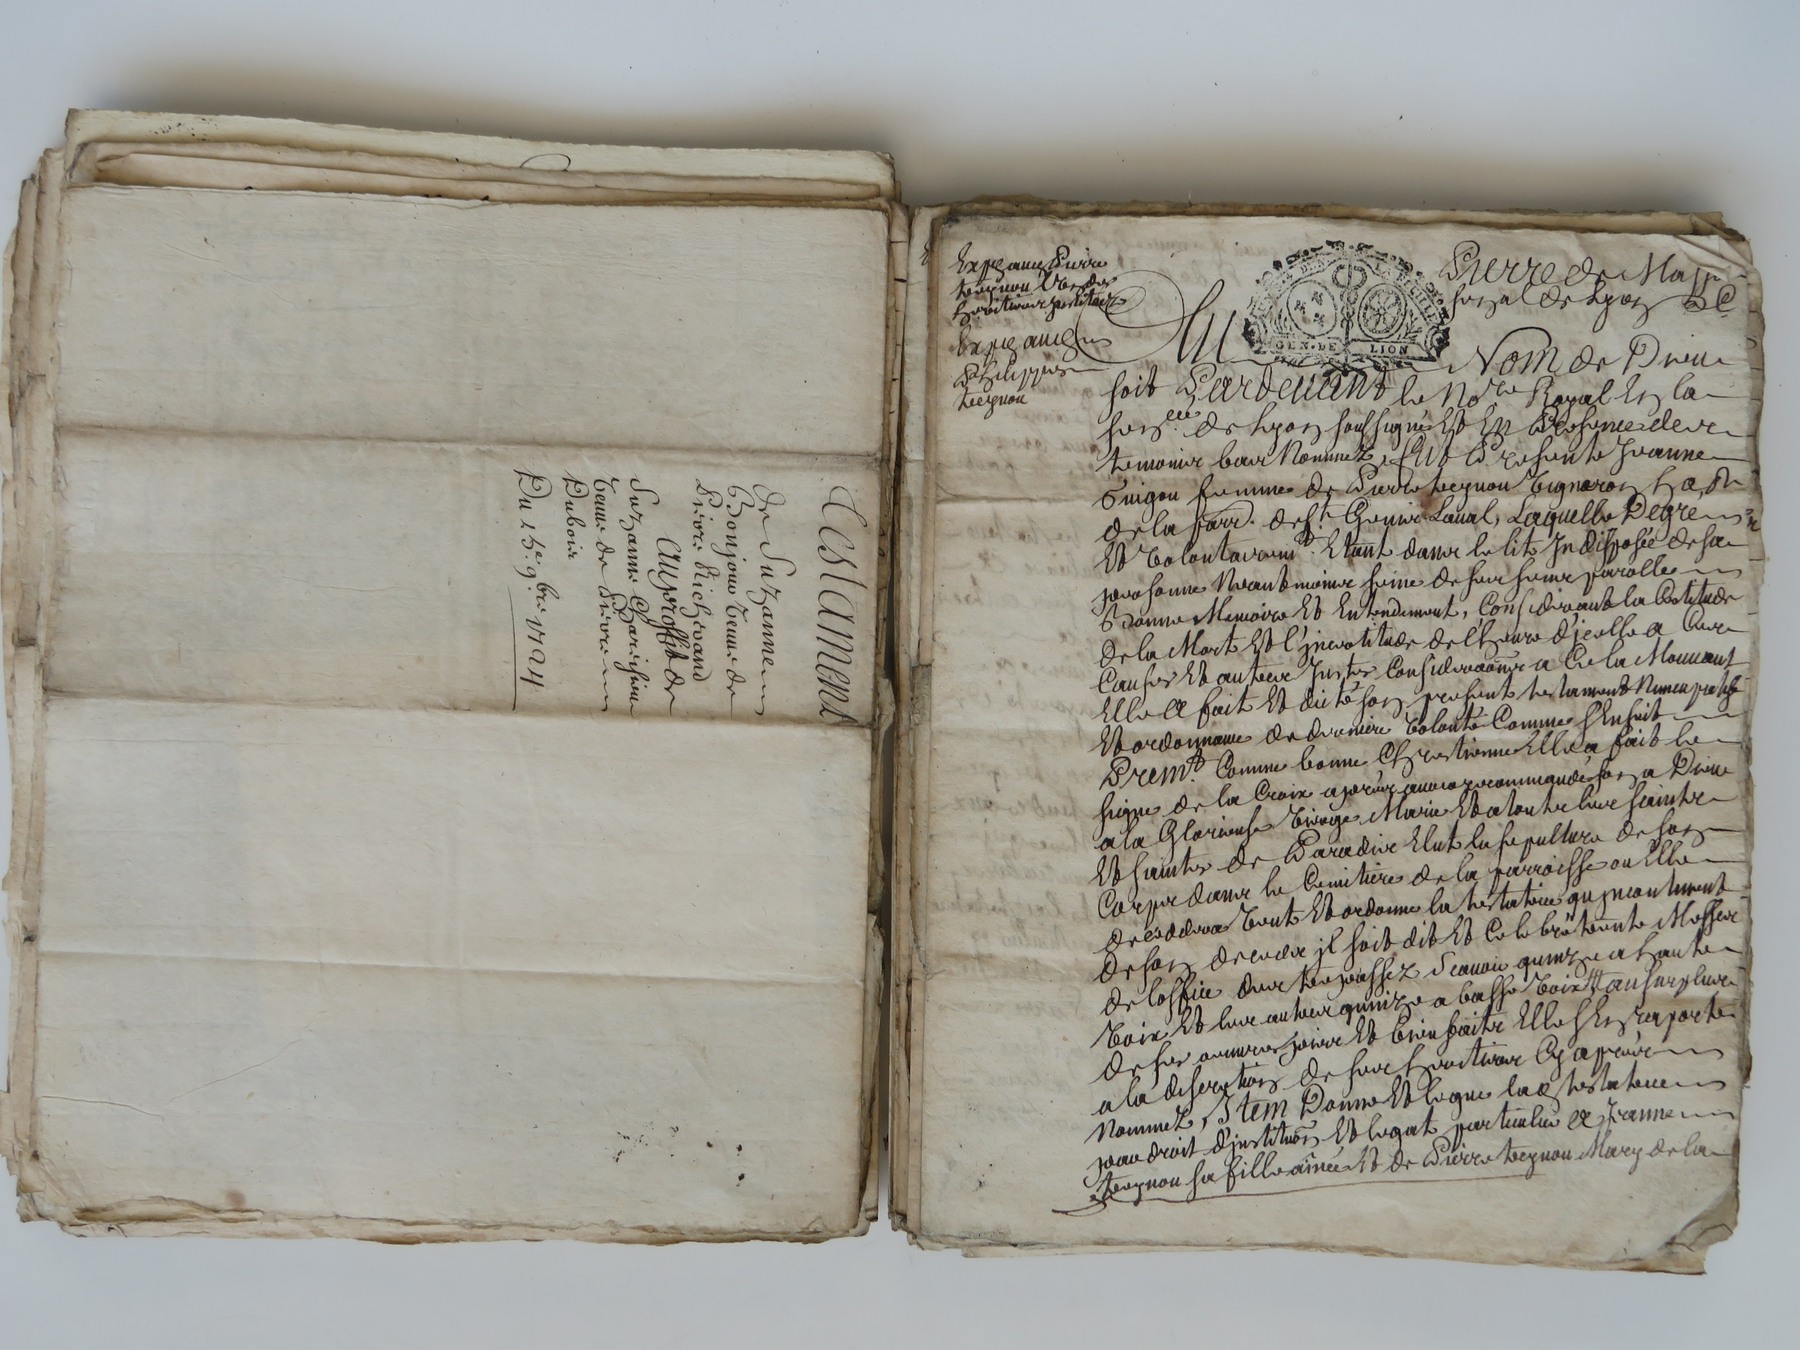 Testament
de Suzanne
Bonjour veuve de
Pierre Richerand
Au proffit de
Suzanne
veuve de Pierre
Dubois
Du 15e 9bre 1724
Exp. au Pierre
teynou
heritier
Exp. au
Philippe
teynou
GEN. DE LION
Pierre de
de Lyon
Au Nom de Dieu
soit Pardevant le Nore Royal En la
senee de Lyon soussigné Et En Presence des
temoins bas Nommez, fut Presente Jeanne
Guigou femme de Pierre teynou Vigneron
de la parr. de St. Genis Laval, Laquelle De gré
Et Volontairemt. Etant dans le lit Indisposée de sa
personne Neantmoins saine de ses sens parolle
bonne Memoire Et Entendement, Considerant la Certitude
de la Mort Et l'incertitude de l'heure d'icelle a Ces
Causes Et autres Justes Considerations a Ce la Mouvant
Elle a fait Et dicté son present testament Nuncupatif
Et ordonnance de derniere Volonté Comme s'Ensuit
Premt. Comme bonne Chrestienne Elle a fait le
signe de la Croix apres avoir recommandé son a Dieu
a la Glorieuse Vierge Marie Et a tous les saints
Et saintes de Paradis Elut la sepulture de son
Corps dans le Cemitiere de la parroisse ou Elle
decedera Veut Et ordonne la testatrice qu'incontinent
de son decedz il soit dit Et Celebré trente Messes
de l'office des trepassez Scavoir quinze a haute
Voix Et les autres quinze a basse Voix, au surplus
de ses œuvres pies Et Bienfaits Elle s'En raporte
a la discretion de ses heritiers Cy apres
Nommez, Item Donne Et legue lad. testatrice
par droit d'institution Et legat particulier a Jeanne
teynou sa fille ainée Et de Pierre teynou Mary de la